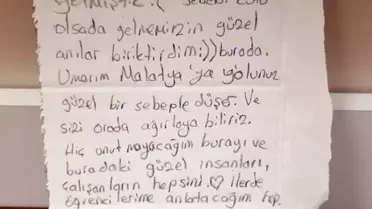 gelmiştik :( sebebi kötü
olsada gelmemizin güzel
anılar biriktirdim:)) burada.
Umarım Malatya'ya yolunuz
güzel bir sebeple düşer. Ve
sizi orada ağırlaya biliriz.
Hiç unutmayacağım burayı ve
buradaki güzel insanları,
çalışanların hepsini ♡ ilerde
öğrencilerime anlatacağım hep.